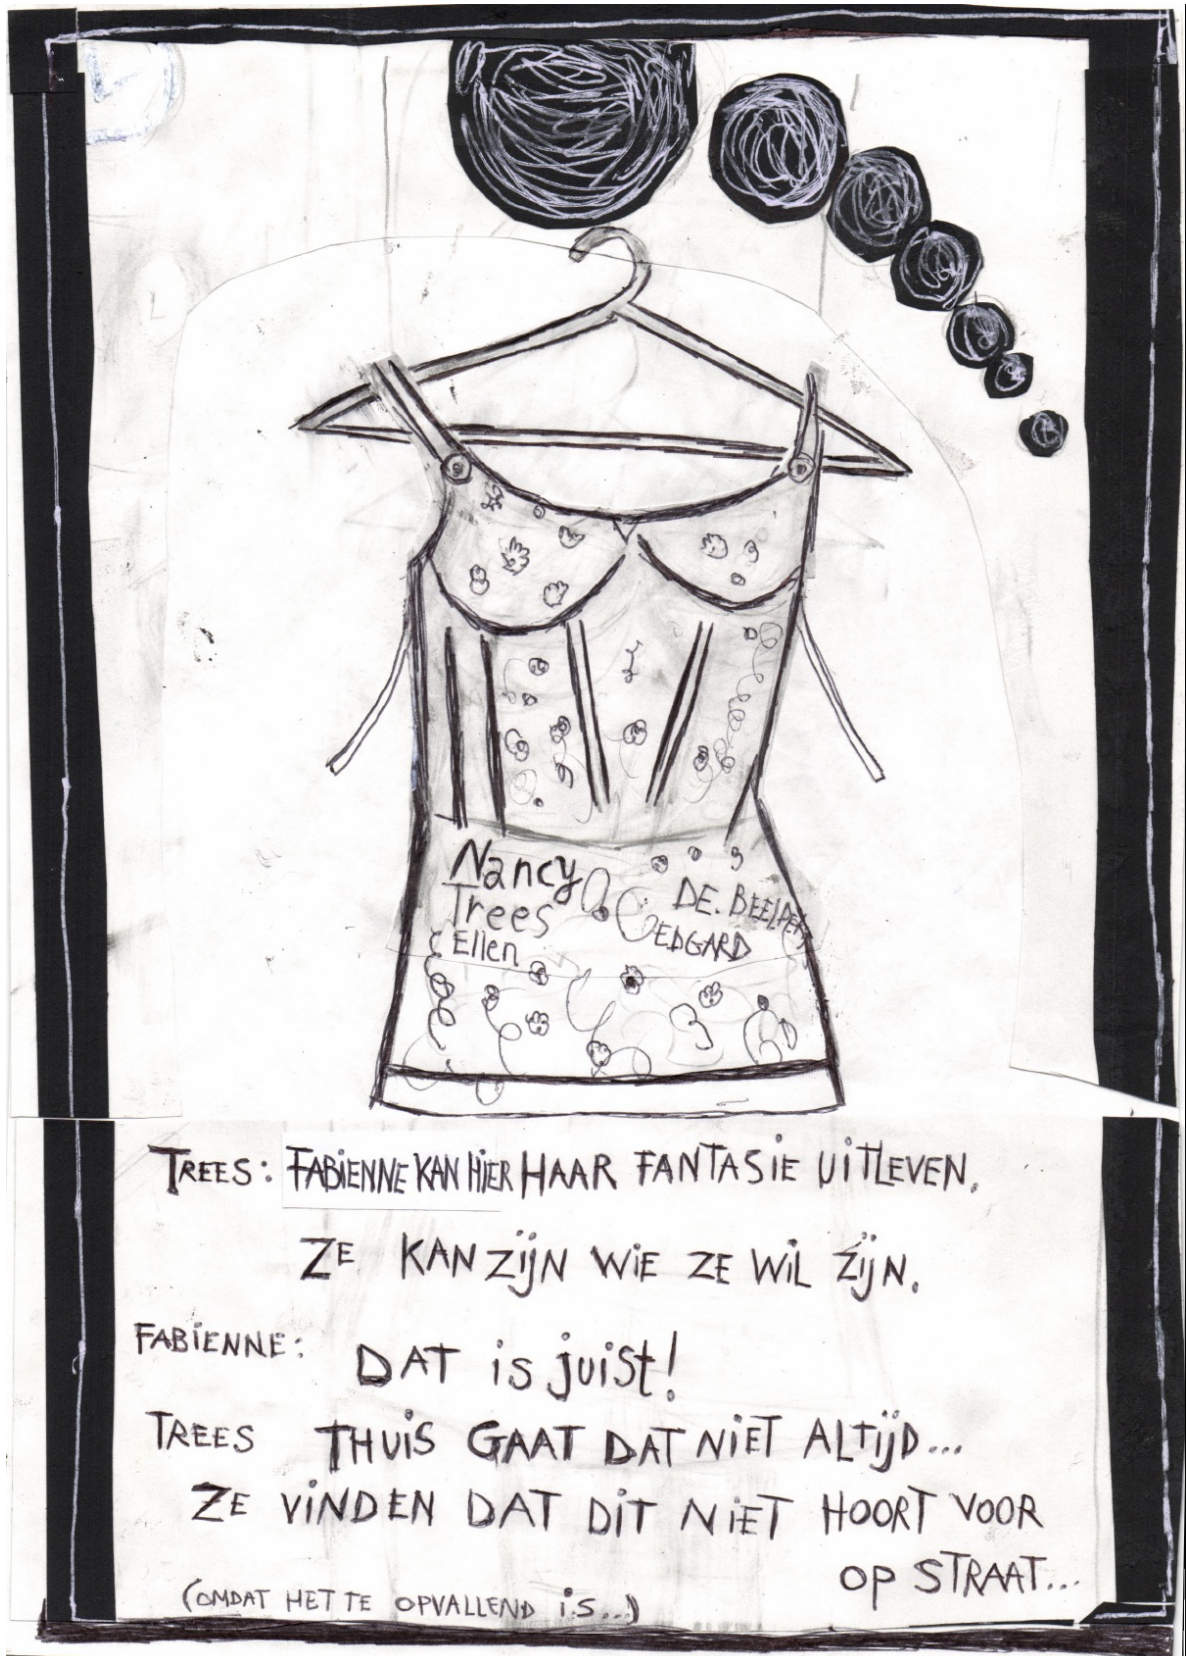 Nancy
Trees
Ellen
DE. BEELDER
EDGARD
TREES: FABIENNE KAN HIER HAAR FANTASIE UITLEVEN.
ZE KAN ZIJN WIE ZE WIL ZIJN.
FABIENNE: DAT is juist!
TREES THUIS GAAT DAT NIET ALTIJD...
ZE VINDEN DAT DIT NIET HOORT VOOR
OP STRAAT...
(OMDAT HET TE OPVALLEND is...)